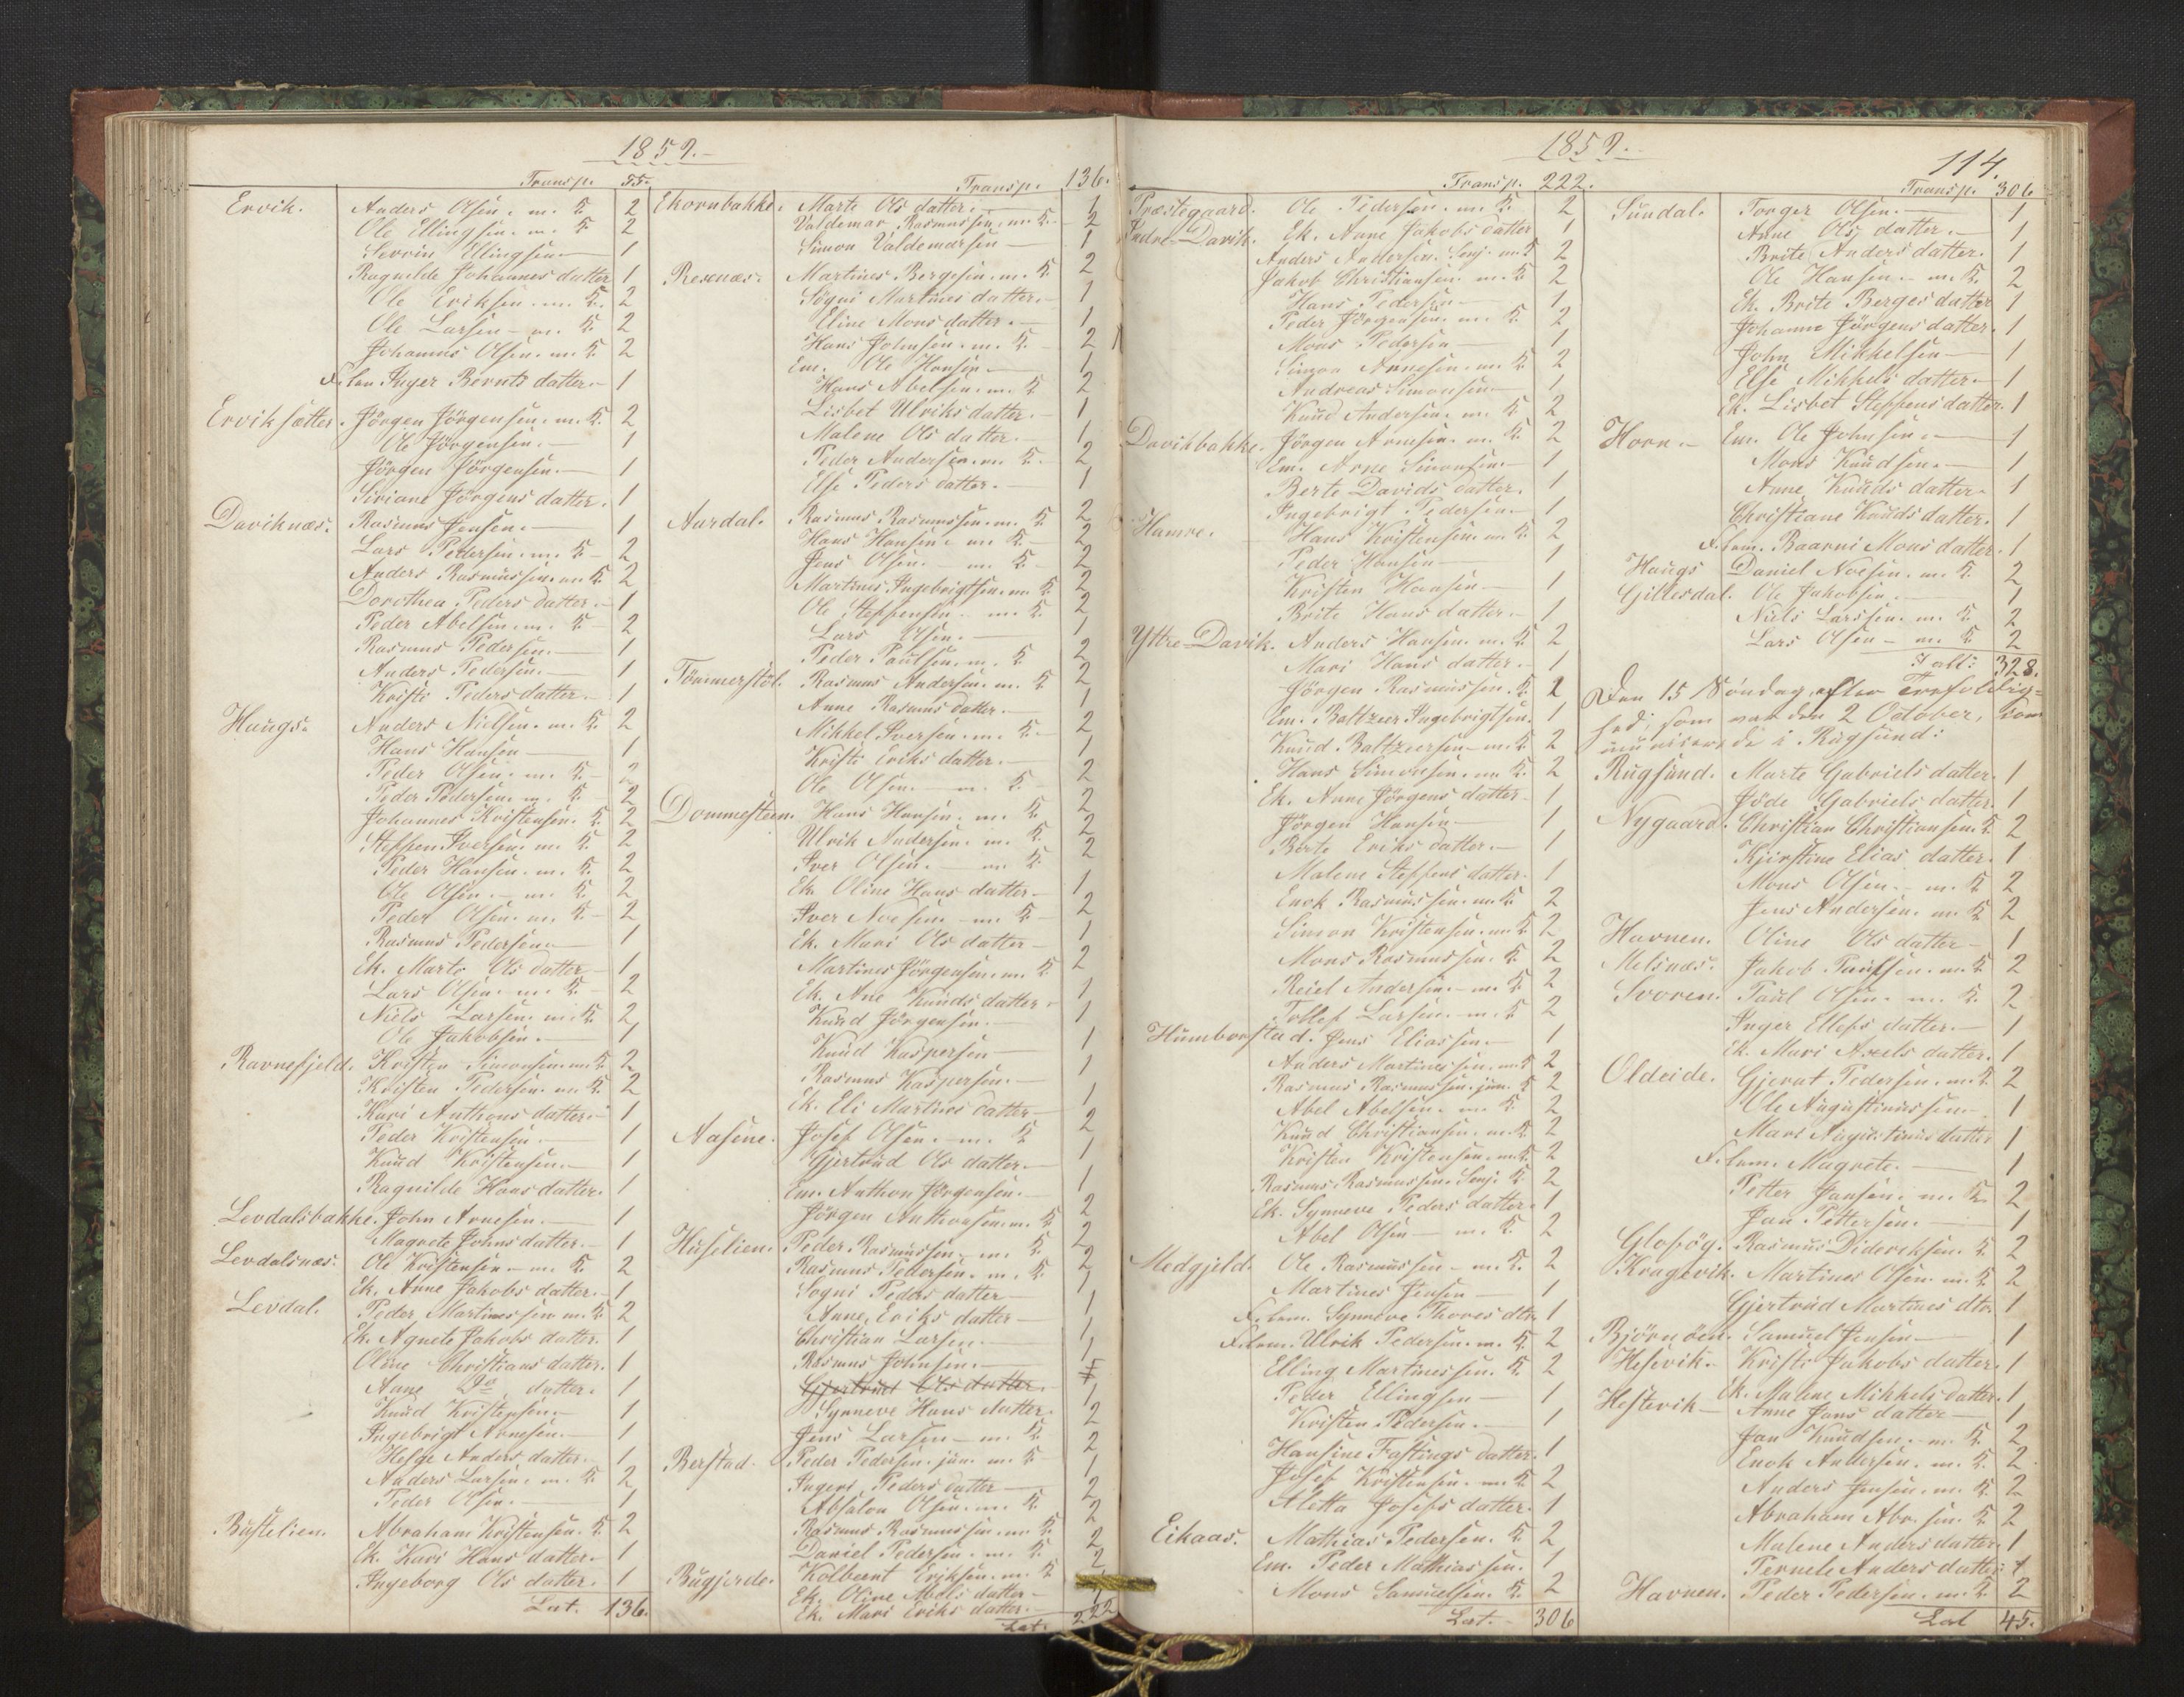 1859.
Transp. 55.
Ervik. Anders Olsen. m. K. 2
Ole Ellingsen. m. K 2
Severin Ellingsen 1
Ragnilde Johannes datter 1
Ole Eriksen. m. K. 2
Ole Larsen - m. K. 2
Johannes Olsen. m. K. 2
F. lem Inger Bernts datter. 1
Erviksætter. Jörgen Jörgensen. m. K. 2
Ole Jörgensen. 1
Jörgen Jörgensen. 1
Siviane Jörgens datter. 1
Daviknæs. Rasmus Jensen. 1
Lars Pedersen. m. K 2
Anders Rasmussen. m K 2
Dorothea Peders datter. 1
Peder Abelsen. m. K 2
Rasmus Pedersen. 1
Anders Pedersen. 1
Kristi Peders datter. 1
Haugs. Anders Nielsen. m. K. 2
Hans Hansen 1
Peder Olsen. m. K. 2
Peder Pedersen. m. K 2
Johannes Kristensen. K. 2
Steffen Iversen. m. K. 2
Peder Hansen. m. K. 2
Ole Olsen. m. K 2
Peder Olsen. m. K 2
Rasmus Pedersen 1
Ek. Marte Ols datter 1
Lars Olsen. m. K. 2
Niels Larsen. m. K. 2
Ole Jakobsen. 1
Ravnefjeld. Kristen Simonsen. m K 2
Kristen Pedersen. m. K. 2
Kari Anthons datter. 1
Peder Kristensen. 1
Knud Kristensen. 1
Ragnilde Hans datter. 1
Levdalsbakke. John Arnesen. 1
Magrete Johns datter. 1
Levdalsnæs. Ole Kristensen - m. K. 2
Ek. Anne Jakobs datter. 1
Levdal. Peder Martinessen m. K 2
Ek. Agnete Jakobs datter. 1
Oline Christians datter. 1
Anne Do datter. 1
Knud Kristensen. 1
Ingebrigt Arnesen. 1
Helge Anders datter. 1
Anders Larsen. m. K. 2
Peder Olsen. 1
Bustelien. Abraham Kristensen. K. 2
Ek. Kari Hans datter. 1
Ingeborg Ols datter. 1
Lat. 136.
Transp. 136.
Ekornbakke. Marte Ols datter. 1
Valdemar Rasmussen. m K. 2
Simon Valdemarsen 1
Rexnæs. Martines Bergesen. m. K. 2
Sögni Martines datter. 1
Eline Mons datter. 1
Hans Johnsen. m. K. 2
Em. Ole Hansen. 1
Hans Abelsen. m. K 2
Lisbet Ulriks datter. 1
Malene Ols datter. 1
Peder Andersen. m. K. 2
Else Peders datter. 1
Aardal. Rasmus Rasmussen. m. K 2
Hans Hansen. m K. 2
Jens Olsen. m. K. 2
Martines Ingebrigtsen. m. K 2
Ole Steffensen. m. K. 2
Lars Olsen. 1
Peder Paulsen. m. K 2
Tömmerstöl. Rasmus Andersen. m. K 2
Anne Rasmus datter. 1
Mikkel Iversen. m. K. 2
Kristi Eriks datter. 1
Ole Olsen. m. K. 2
Dommesteen. Hans Hansen. m. K 2
Ulrik Andersen. m. K 2
Iver Olsen. m. K 2
Ek. Oline Hans datter 1
Iver Noesen - m. K 2
Ek. Mari Ols datter 1
Martines Jörgensen. m. K 2
Ek. Ane Knuds datter. 1
Knud Jörgensen. 1
Knud Kaspersen 1
Rasmus Kaspersen. 1
Ek. Eli Martines datter 1
Aasene. Josef Olsen. m. K 2
Gjertrud Ols datter. 1
Em. Anthon Jörgensen. 1
Jörgen Anthonsen. m. K 2
Huselien. Peder Rasmussen. m. K. 2
Rasmus Pedersen. m. K. 2
Sogni Peders datter 1
Anne Eriks datter 1
Christian Larsen. 1
Rasmus Johnsen. 1
Gjertrud Ols datter. 1
Synneve Hans datter. 1
Jens Larsen - m. K. 2
Berstad. Peder Pedersen. jun. m. K 2
Ingeri Peders datter 1
Absalon Olsen. m. K. 2
Rasmus Rasmussen. m K. 2
Daniel Pedersen. m. K. 2
Bugjerde. Kolbeent Eriksen. m. K 2
Ek. Oline Abels datter 1
Ek. Mari Eriks datter. 1
Lat. 222
1859.
114.
Transp. 222.
Præstegaard. Ole Pedersen. m. K. 2
Indre-Davik. Ek. Anne Jakobs datter 1
Anders Andersen. Senj. m K 2
Jakob Christiansen. m. K 2
Hans Pedersen 1
Peder Jörgensen. m. K. 2
Mons Pedersen 1
Simon Arnesen. m K 2
Andreas Simonsen 1
Knud Andersen. m. K 2
Davikbakke. Jörgen Arnesen. m. K. 2
Em. Arne Simonsen. 1
Berte Davids datter. 1
Ingebrigt Pedersen. 1
Hamre. Hans Kristensen. m. K 2
Peder Hansen 1
Kristen Hansen 1
Brite Hans datter. 1
Yttre-Davik. Anders Hansen. m. K 2
Mari Hans datter. 1
Jörgen Rasmussen. K. 2
Em. Baltzer Ingebrigtsen. 1
Knud Baltzersen - m. K. 2
Hans Simonsen. m K. 2
Ek. Anne Jörgens datter 1
Jörgen Hansen 1
Berte Eriks datter. 1
Malene Steffens datter. 1
Enok Rasmussen. m. K 2
Simon Kristensen. m. K 2
Mons Rasmussen. K 2
Reiel Andersen - m. K 2
Tollef Larsen. m. K 2
Humborstad. Jens Eliassen. 1
Anders Martinessen. m. K 2
Rasmus Rasmussen. jun. K 2
Abel Abelsen. m. K 2
Knud Christiansen. m. K 2
Kristen Kristensen. m. K 2
Rasmus Rasmussen. Senj. K 2
Ek. Synneve Peders datter. 1
Abel Olsen - m. K. 2
Medgjeld. Ole Rasmussen - m. K. 2
Martines Jensen 1
F. lem. Synneve Thores dtr. 1
F. lem. Ulrik Pedersen. m. K 2
Elling Martinessen. K. 2
Peder Ellingsen 1
Kristen Pedersen. 1
Hansine Fastings datter. 1
Josef Kristensen. m K 2
Aletta Josefs datter. 1
Eikaas. Mathias Pedersen. K. 2
Em. Peder Mathiassen. 1
Mons Samuelsen. K. 2
Lat. 306
Transp. 306
Sundal. Torger Olsen. 1
Anne Ols datter. 1
Brite Anders datter. 1
Ole Hansen. m. K. 2
Ek. Brite Berges datter 1
Johanne Jörgens datter. 1
John Mikkelsen 1
Else Mikkels datter. 1
Ek. Lisbet Steffens datter. 1
Horn. Em. Ole Johnsen. 1
Mons Knudsen. 1
Anne Knuds datter 1
Christiane Knuds datter. 1
F. lem. Baarni Mons datter. 1
Haugs Daniel Noesen. m. K. 2
Gillesdal. Ole Jakobsen. 1
Niels Larssen. m. K 2
Lars Olsen - m. K 2
I alt: 328.
Den 15 Söndag efter Trefoldig-
hed, som var den 2 October, kom
municerede i Rugsund:
Rugsund. Marte Gabriels datter. 1
Jöde Gabriels datter. 1
Nygaard. Christian Christiansen. K 2
Kjirstine Elias datter. 1
Mons Olsen. - m. K 2
Jens Andersen. m. K 2
Havnen. Oline Ols datter 1
Melsnæs. Jakob Paulsen. m. K 2
Svoren. Paul Olsen. m. K. 2
Inger Ellefs datter. 1
Ek. Mari Axels datter. 1
Oldeide. Gjerent Pedersen. m. K 2
Ole Augustinussen. 1
Mari Augustinus datter 1
F. lem. Magrete. 1
Petter Jansen. m. K. 2
Jan Pettersen. 1
Glosög. Rasmus Dideriksen. K 2
Kragevik. Martines Olsen. m. K 2
Gjertrud Martines dtr. 1
Björnöen. Samuel Jensen 1
Hesevik. Kristi Jakobs datter. 1
Ek. Malene Mikkels datter. 1
Hestevik Anne Jans datter 1
Jan Knudsen. m. K 2
Enok Andersen. m. K 2
Anders Jensen. m. K 2
Abraham Abr. sen. K 2
Malene Anders datter. 1
Pernele Anders datter. 1
Havnen. Peder Pedersen. m. K 2
Lat 45.